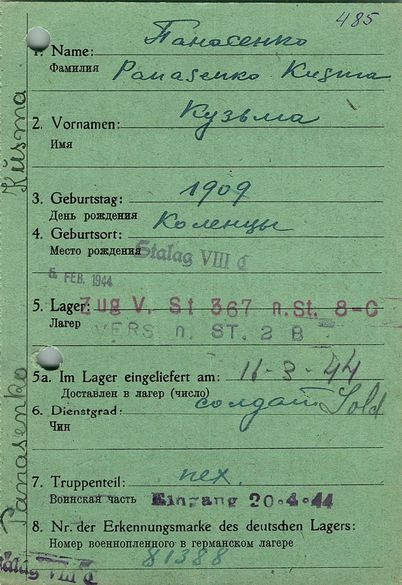 485
Панасенко
1. Name:
Фамилия
Panasenko Kusma
Кузьма
2. Vornamen:
Имя
1909
3. Geburtstag:
День рождения
Коленцы
4. Geburtsort:
Место рождения
Stalag VIII C
6. FEB. 1944
5. Lager: Zug V. St 367 n. St. 8-C
Лагер
VERS n. ST. 2 B
5a. Im Lager eingeliefert am: 11-3-44
Доставлен в лагер (число)
6. Dienstgrad: солдат Sold
Чин
7. Truppenteil: пех.
Воинская часть Eingang 20.4.44
8. Nr. der Erkennungsmarke des deutschen Lagers:
Номер военнопленного в германском лагере
81388
Stalag VIII C
Panasenko Küsma